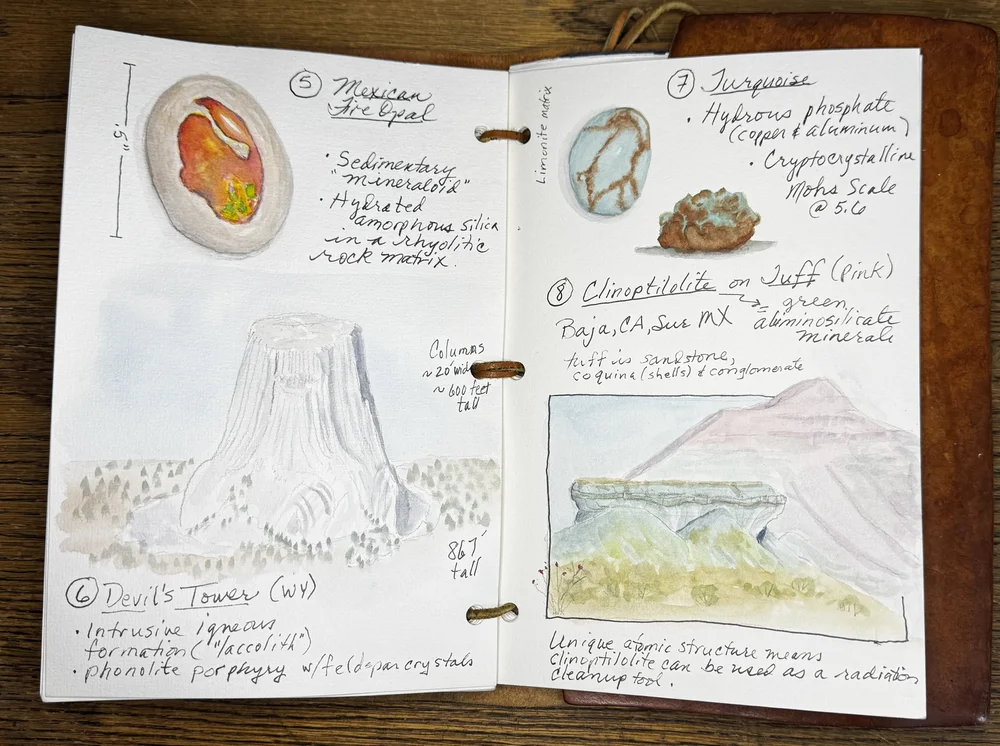 .5"
⑤ Mexican
Fire Opal
• Sedimentary
"mineraloid"
• Hydrated
amorphous silica
in a rhyolitic
rock matrix.
Columns
~20' wide
~600 feet
tall
867'
tall
⑥ Devil's Tower (WY)
• Intrusive igneous
formation ("laccolith")
• phonolite porphyry w/feldspar crystals
Limonite matrix
⑦ Turquoise
• Hydrous phosphate
(copper & aluminum)
• Cryptocrystalline
Mohs Scale
@ 5.6
⑧ Clinoptilolite on Tuff (pink)
→ green,
Baja, CA, Sur MX
aluminosilicate
minerals
tuff is sandstone,
coquina (shells) & conglomerate
Unique atomic structure means
clinoptilolite can be used as a radiation
cleanup tool.